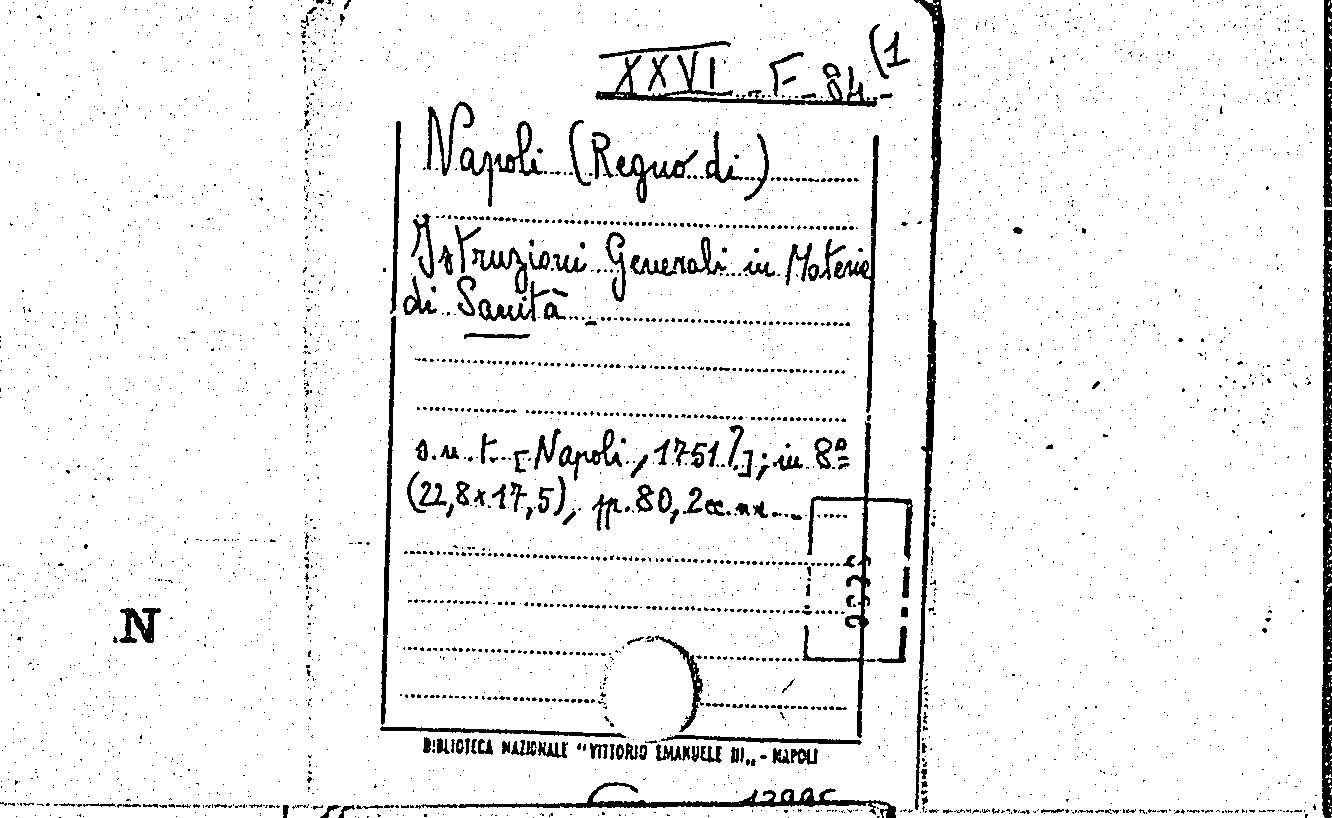 XXVI - F - 84 (1
Napoli (Regno di)
Istruzioni Generali in Materie
di Sanità -
s.n.t. [Napoli, 1751?]; in 8º
(22,8x17,5), pp. 80, 2cc. nn. -
N
BIBLIOTECA NAZIONALE "VITTORIO EMANUELE III„ - NAPOLI